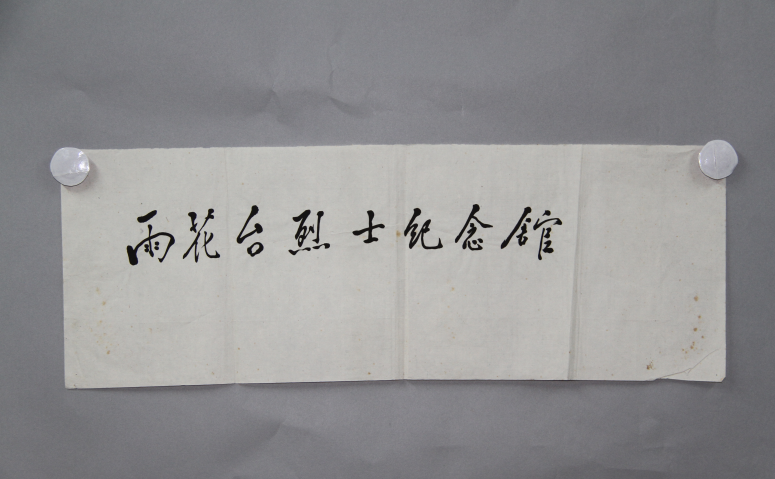 雨花台烈士纪念舘